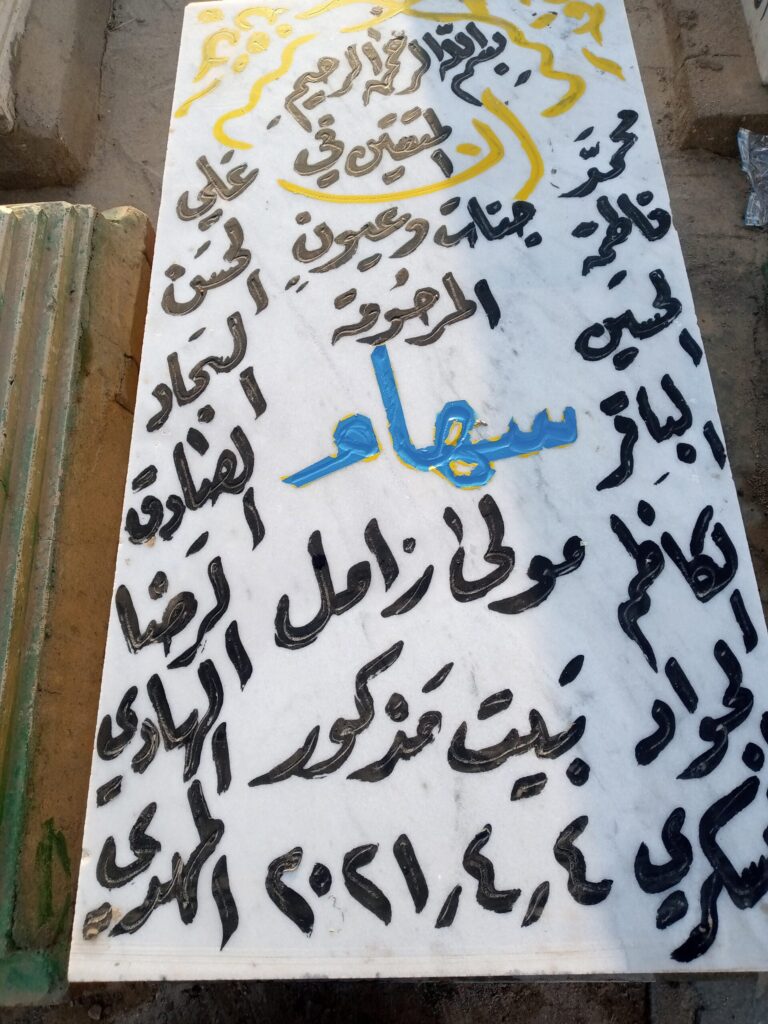 بسم الله الرحمن الرحيم
ان المتقين في
جنات وعيون
المرحومة
سهام
مولى زامل
بيت مذكور
٤،٤،٢٠٢١
محمد
فاطمة
الحسين
الباقر
الكاظم
الجواد
سكري
علي
الحسن
السجاد
الصادق
الرضا
الهادي
المهدي